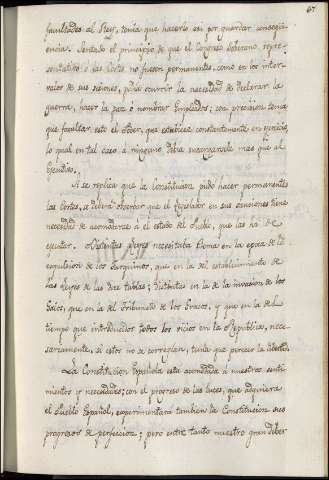 67
facultades al Rey, tenía que hacerlo así por guardar conseqüencia. Sentado el principio de que el Congreso Soberano repre-
sentativo ó las Cortes no fuesen permanentes, como en los inter-
valos de sus sesiones, podía ocurrir la necesidad de declarar la
guerra, hacer la paz ó nombrar Empleados; con precision tenía
que facultar esto el Poder, que estubiese constantemente en exercicio,
lo qual en tal caso á ninguno debía encargarsele mas que al
Executivo.
Si se replica que la Constitucion pudo hacer permanentes
las Cortes, se deberá observar que el Legislador en sus sanciones tiene
necesidad de acomodarse á el estado del Pueblo, que las ha de
executar. Distintas Leyes necesitaba Roma en la epoca de la
expulsion de los Tarquinos, que en la del establecimiento de
las Leyes de las doce tablas; distintas en la de la invasion de los
Galos, que en la del Tribunado de los Gracos, y que en la del
tiempo que introducidos todos los vicios en la Republica, nece-
sariamente, si estos no se corregian, tenía que perecer la libertad.
La Constitucion Española está acomodada á nuestros senti-
mientos y necesidades; con el progreso de las luces, que adquiera
el Pueblo Español, experimentará tambien la Constitucion sus
progresos de perfeccion; pero entre tanto nuestro gran deber